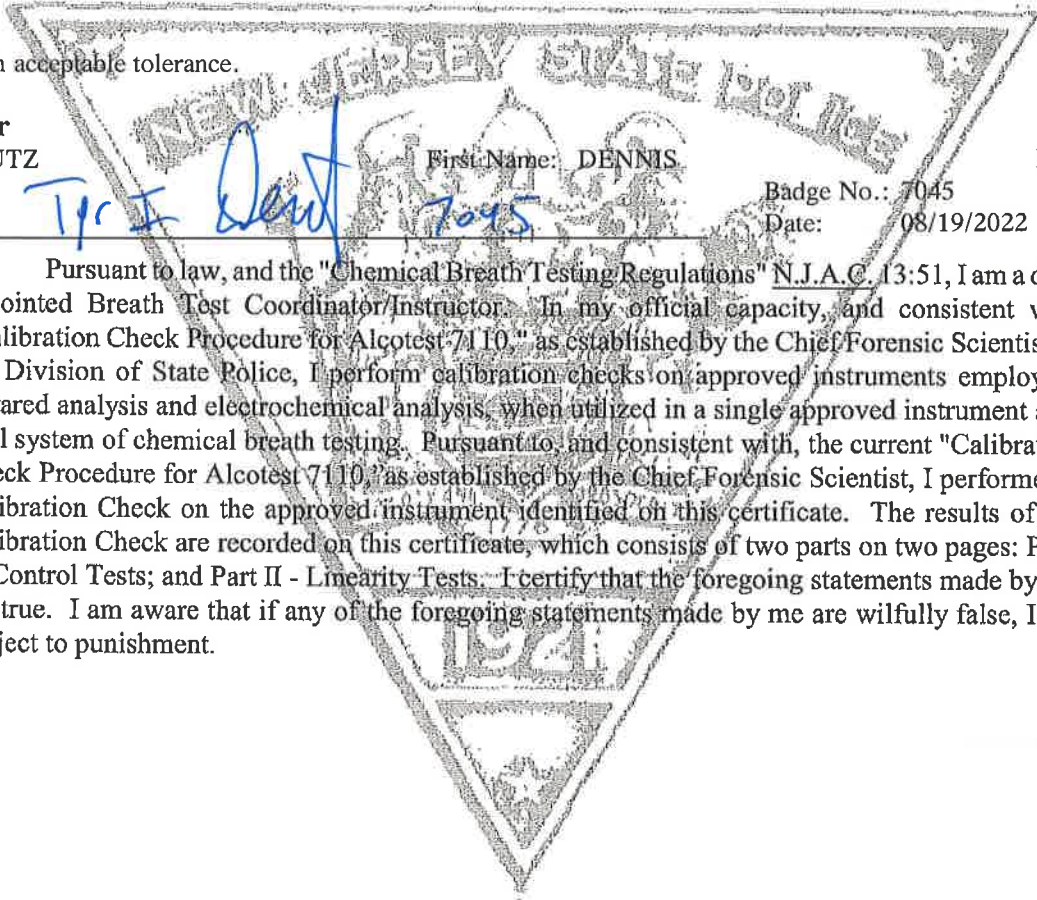 n acceptable tolerance.
NEW JERSEY STATE POLICE
r
UTZ First Name: DENNIS
Badge No.: 7045
Tpr I 7045
Date: 08/19/2022
Pursuant to law, and the "Chemical Breath Testing Regulations" N.J.A.C. 13:51, I am a d
ointed Breath Test Coordinator/Instructor. In my official capacity, and consistent v
libration Check Procedure for Alcotest 7110," as established by the Chief Forensic Scientis
Division of State Police, I perform calibration checks on approved instruments employ
ared analysis and electrochemical analysis, when utilized in a single approved instrument a
l system of chemical breath testing. Pursuant to, and consistent with, the current "Calibra
eck Procedure for Alcotest 7110," as established by the Chief Forensic Scientist, I performe
ibration Check on the approved instrument identified on this certificate. The results of
ibration Check are recorded on this certificate, which consists of two parts on two pages: P
Control Tests; and Part II - Linearity Tests. I certify that the foregoing statements made by
true. I am aware that if any of the foregoing statements made by me are wilfully false, I
ject to punishment.
1921